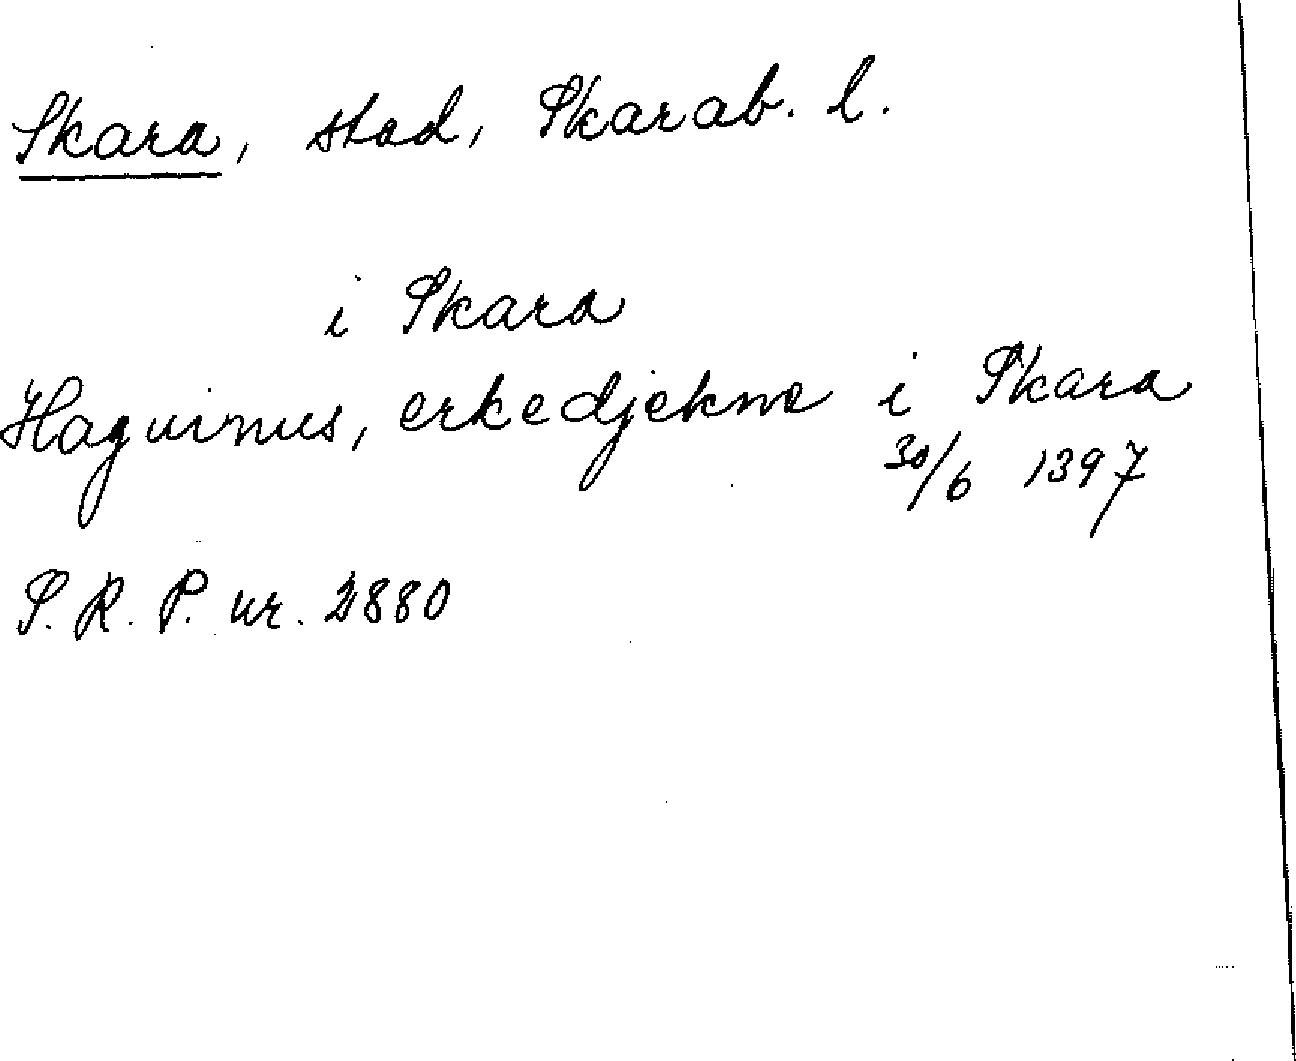 Skara, stad, Skarab. l.
i Skara
Haquinus, erkedjekne i Skara
30/6 1397
S. R. P. nr. 2880